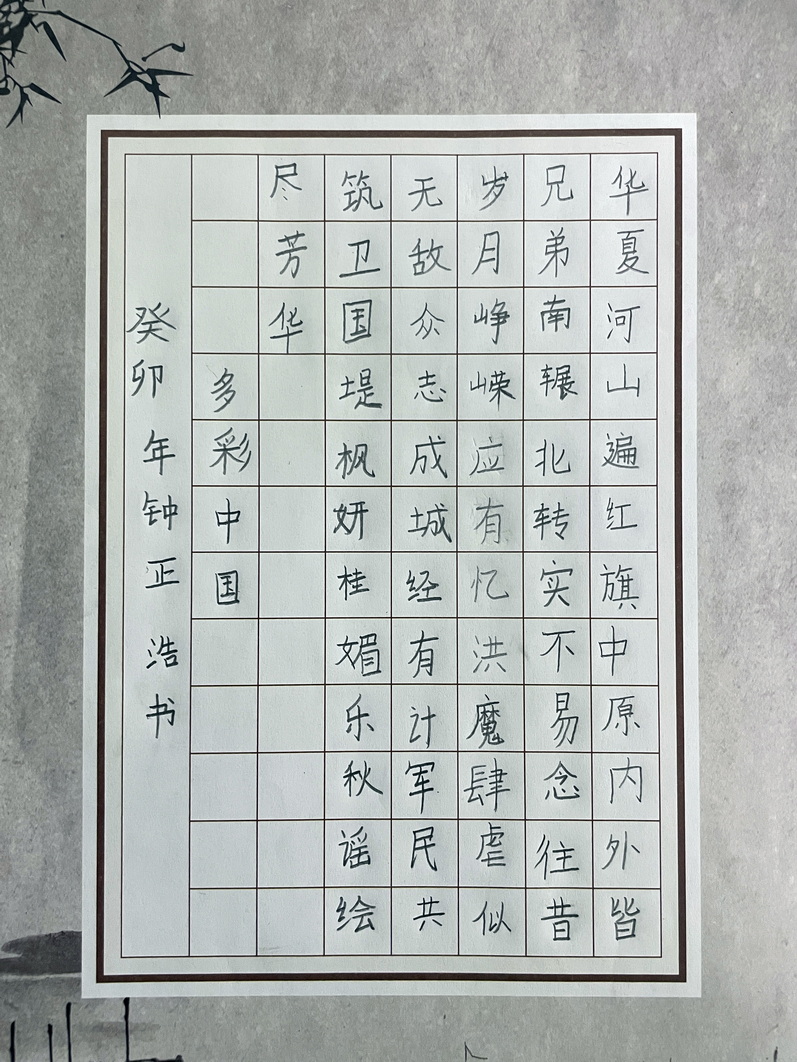 华夏河山遍红旗中原内外皆
兄弟南辗北转实不易念往昔
岁月峥嵘应有忆洪魔肆虐似
无敌众志成城经有计军民共
筑卫国堤枫妍桂媚乐秋谣绘
尽芳华
多彩中国
癸卯年钟正浩书